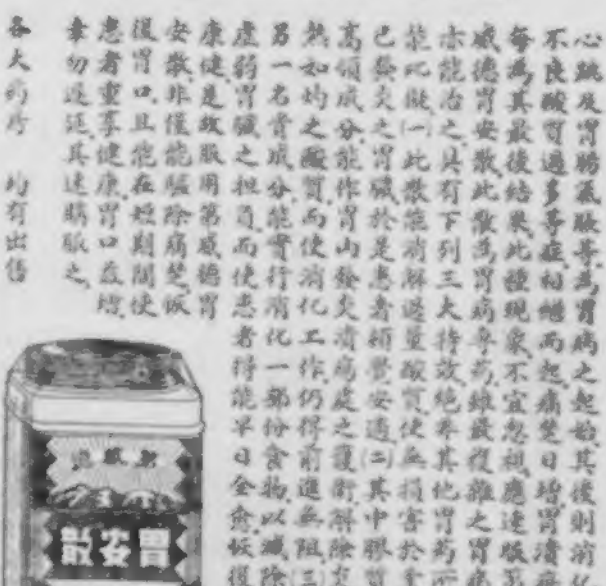 心跳及胃腸氣脹等為胃病之起始其後則消化
不良酸質過多等症相繼而起痛楚日增胃潰
每為其最後結果此種現象不宜忽視應速服
威德胃安散此散為胃病專药雖最複雜之胃
亦能治之具有下列三大特效絕非其他胃药所
能比擬(一)此散能消解過量酸質使無損害於
已發炎之胃臟於是患者頓覺安適(二)其中膠質
高嶺成分能作胃山發炎潰瘍處之護衛解除
熱如灼之酸質而使消化工作仍得前進無阻(三)
另一名貴成分能實行消化一部份食物以減除
虛弱胃臟之担負而使患者得能早日全愈恢復
康健是故服用第威德胃
安散非僅能驅除痛楚恢
復胃口且能在短期間使
患者重享健康胃口益增
幸勿遲延其速購服之
各大药房 均有出售
散安胃